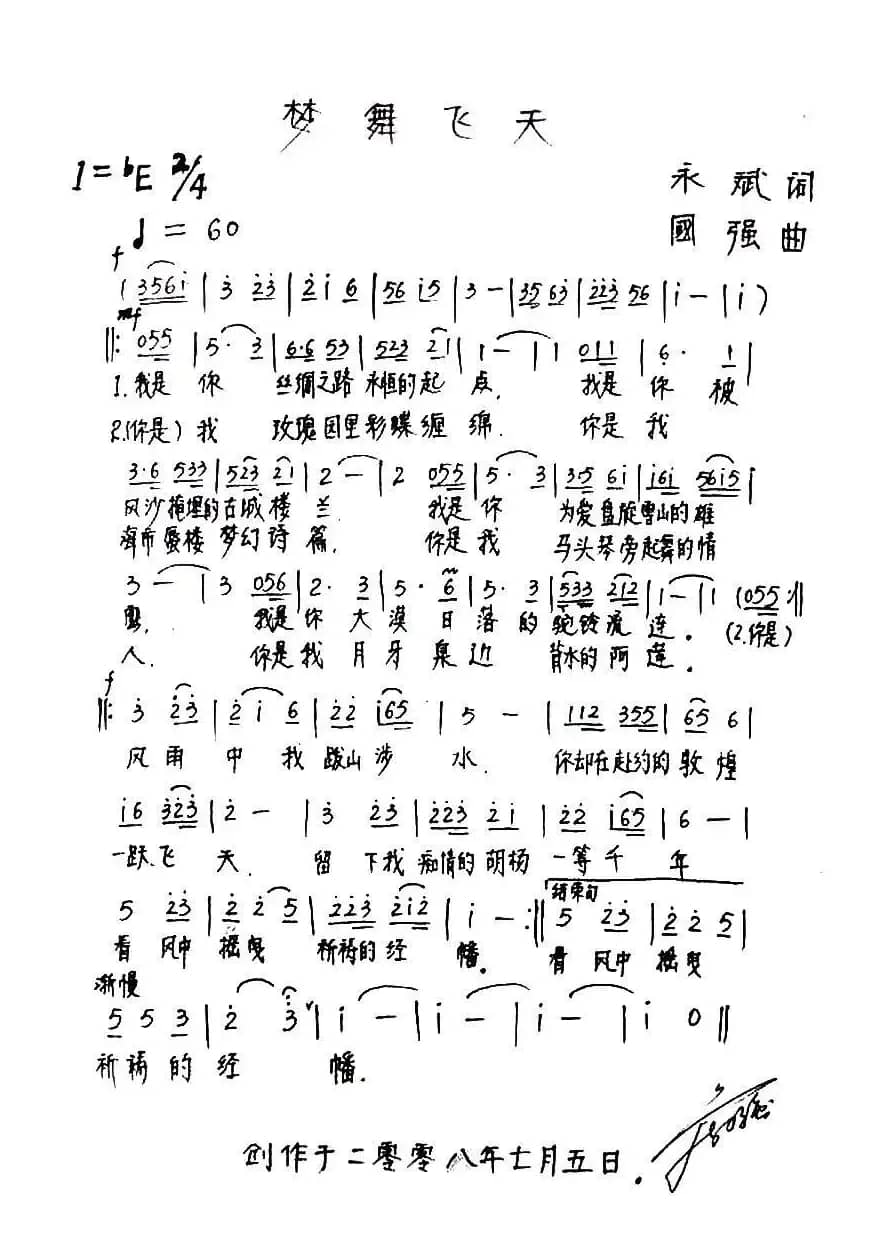 梦舞飞天
1=bE 2/4
永斌词
♩=60
國强曲
f
(3561̇ | 3̇ 2̇3̇ | 2̇1̇ 6 | 56 1̇5 | 3 - | 35 63 | 2̇2̇3̇ 56 | 1̇ - | 1̇ )
mf
‖: 055 | 5· 3 | 6·6 53 | 523 21 | 1 - | 1 011 | 6̣· 1 |
1.我是 你 丝绸之路 永恒的起 点, 我是 你 被
2.(你是)我 玫瑰园里彩蝶缠 绵. 你是 我
3·6 533 | 523 21 | 2 - | 2 055 | 5· 3 | 3·5 61̇ | 1̇61̇ 561̇5 |
风沙掩埋的古城楼 兰. 我是你 为爱盘旋雪山的雄
海市蜃楼 梦幻诗 篇. 你是我 马头琴旁起舞的情
3 - | 3 056 | 2· 3 | 5· 6 | 5· 3 | 533 212 | 1 - | 1 (055 :‖
鹰. 我是你 大 漠 日 落 的 驼铃流 连. (2.你是)
人. 你是我 月 牙 泉 边 背水的 阿 莲.
f
‖: 3̇ 2̇3̇ | 2̇ 1̇ 6 | 2̇2̇ 1̇65 | 5 - | 112 355 | 65 6 |
风雨 中 我 跋山 涉 水. 你却在赴约的敦 煌
1̇6 3̇2̇3̇ | 2̇ - | 3̇ 2̇3̇ | 2̇2̇3̇ 2̇1̇ | 2̇2̇ 1̇65 | 6 - |
一跃飞 天. 留 下我 痴情的胡杨 一等 千 年
结束句
5 2̇3̇ | 2̇ 2̇ 5 | 2̇2̇3̇ 2̇1̇2̇ | 1̇ - :‖ 5 2̇3̇ | 2̇ 2̇ 5 |
看 风中 摇曳 祈祷的 经 幡. 看 风中 摇曳
渐慢
5 5 3 | 2̇ 3̇ | 1̇ - | 1̇ - | 1̇ - | 1̇ 0 ‖
祈祷 的 经 幡.
创作于二零零八年七月五日.